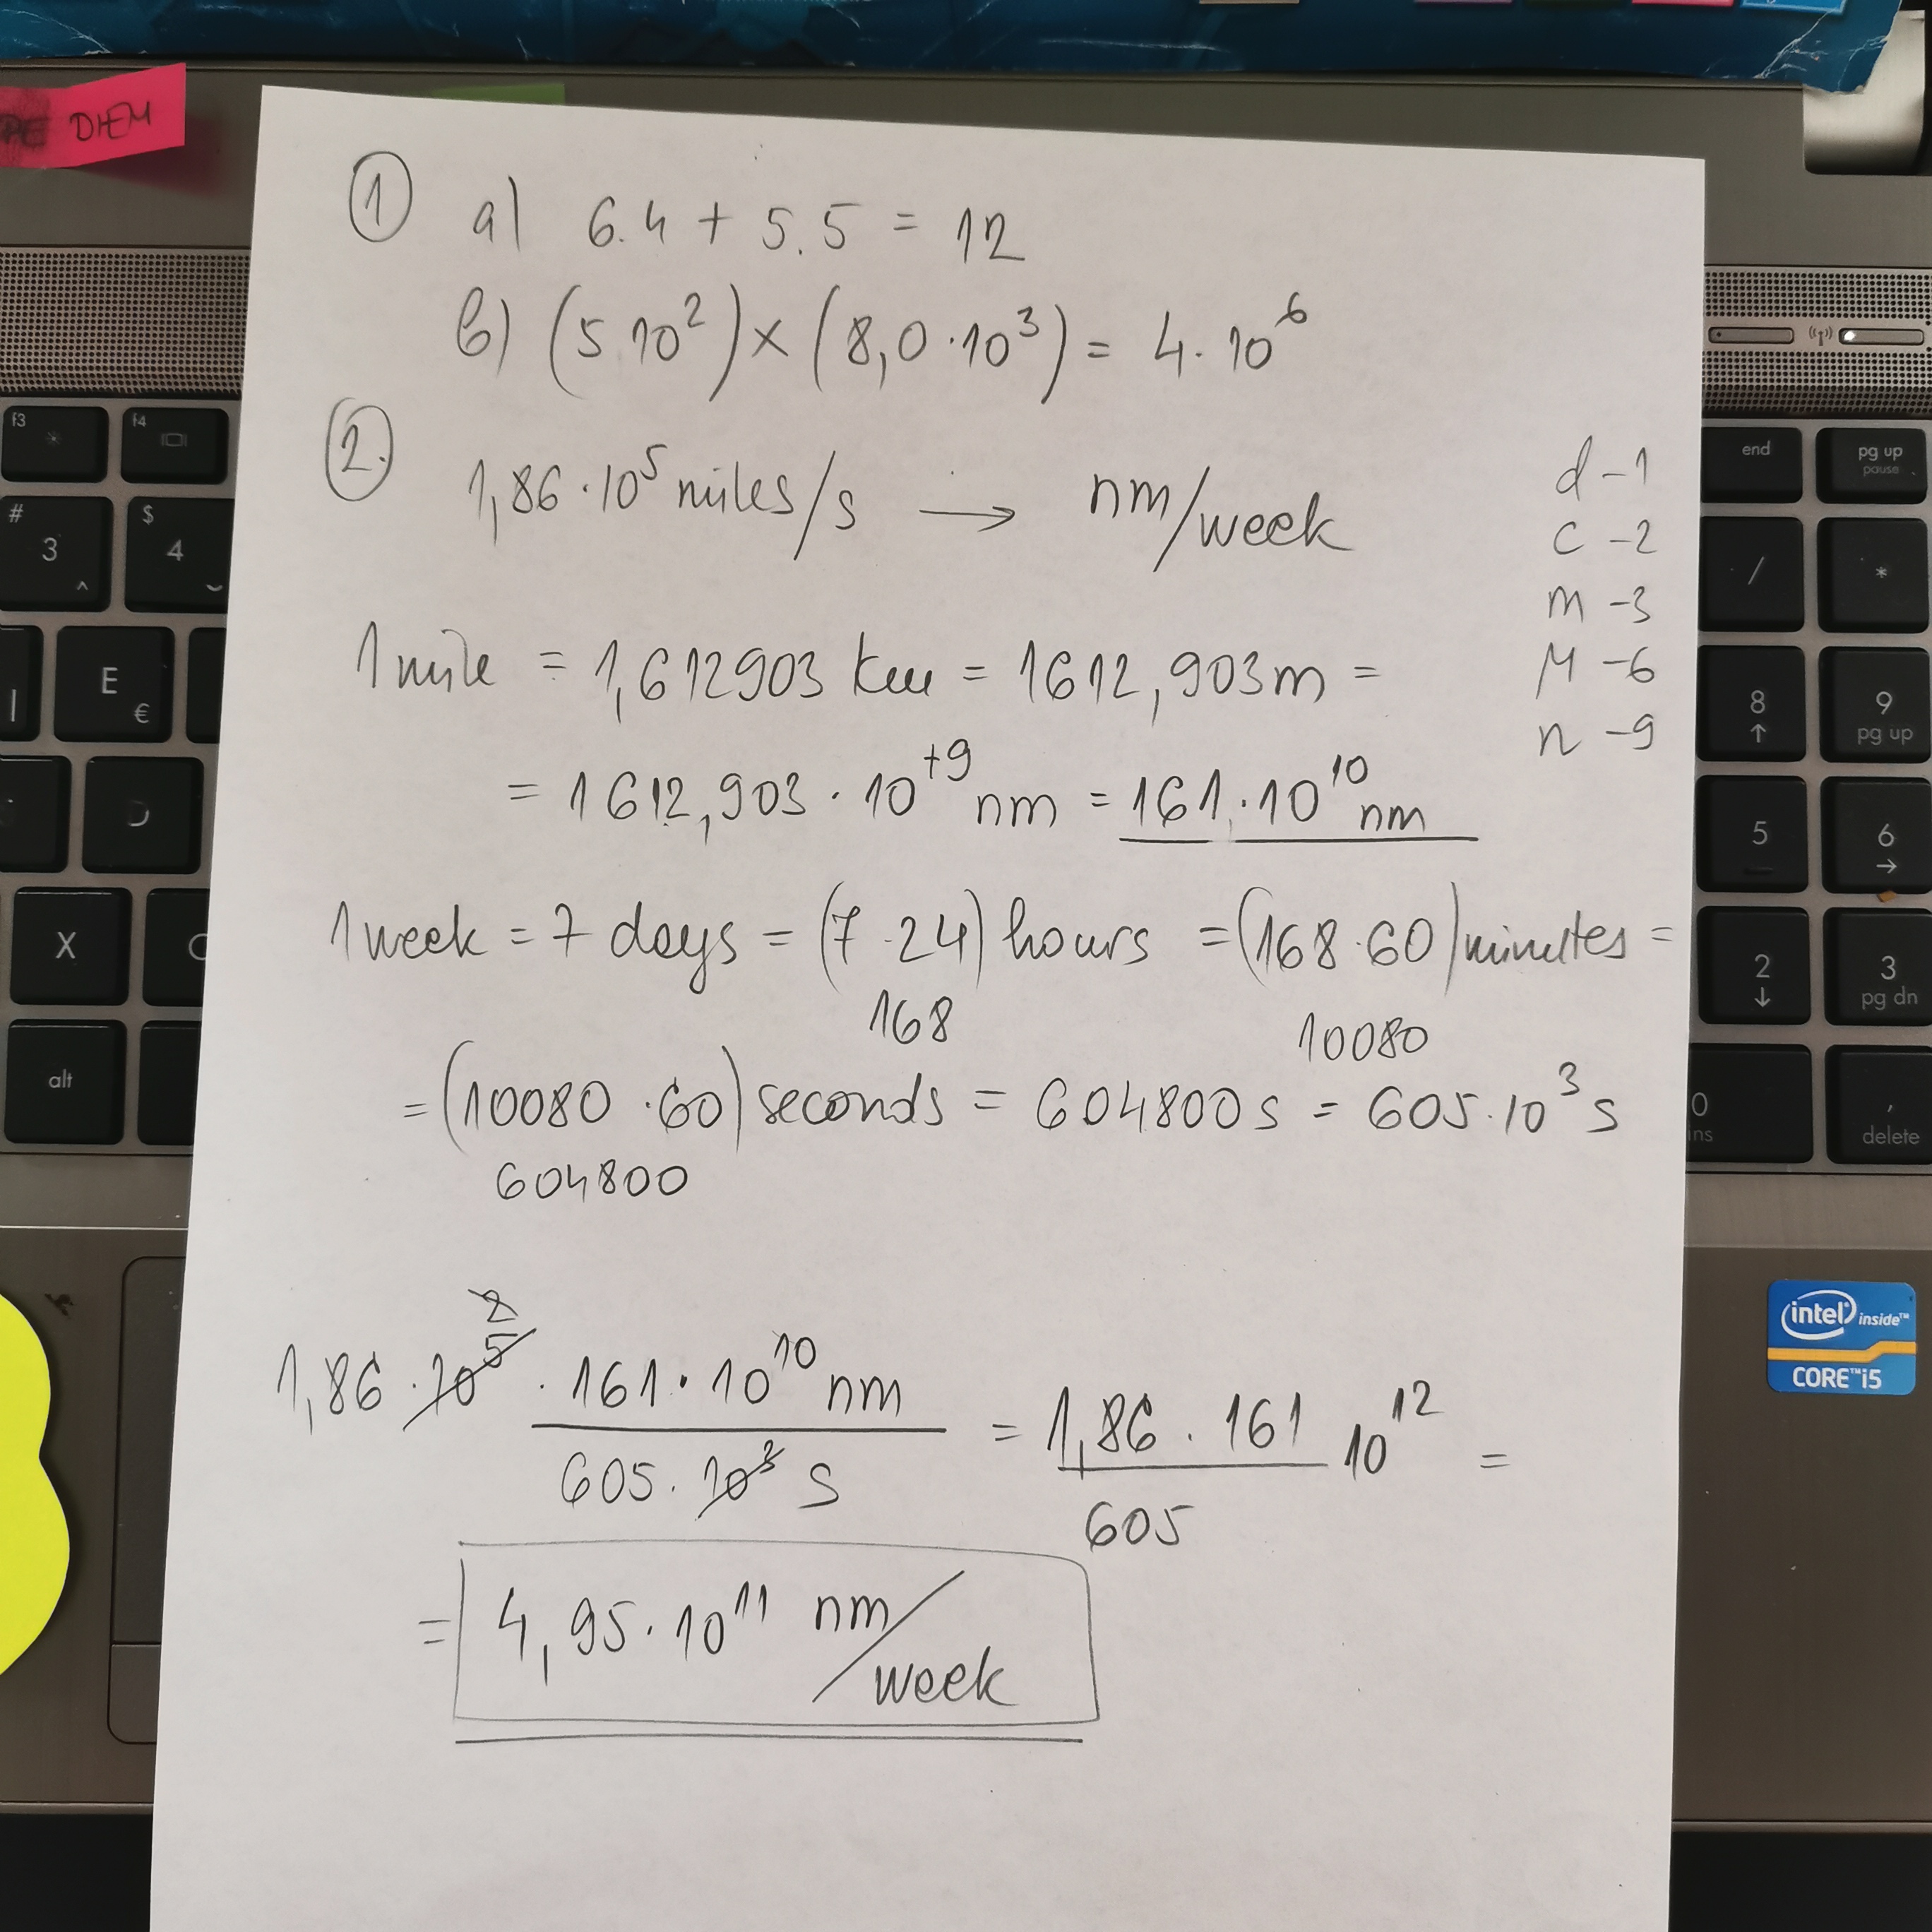 PE DIEM
① a) 6.4 + 5.5 = 12
b) (5 10²) × (8,0 · 10³) = 4 · 10⁶
②. 1,86 · 10⁵ miles/s → nm/week
d -1
c -2
m -3
M -6
n -9
1 mile = 1,612903 km = 1612,903m =
= 1612,903 · 10⁺⁹ nm = 161 · 10¹⁰ nm
1 week = 7 days = (7 · 24) hours = (168 · 60) minutes =
168 10080
= (10080 · 60) seconds = 604800 s = 605 · 10³ s
604800
2
1,86 · 10⁵ · 161 · 10¹⁰ nm / 605 · 10³ s = 1,86 · 161 / 605 10¹² =
= 4,95 · 10¹¹ nm/week
f3
f4
# 3 ^
$ 4
E €
X
alt
end
pg up pause
/
*
8 ↑
9 pg up
5
6 →
2 ↓
3 pg dn
0 ins
, delete
intel inside™
CORE™ i5